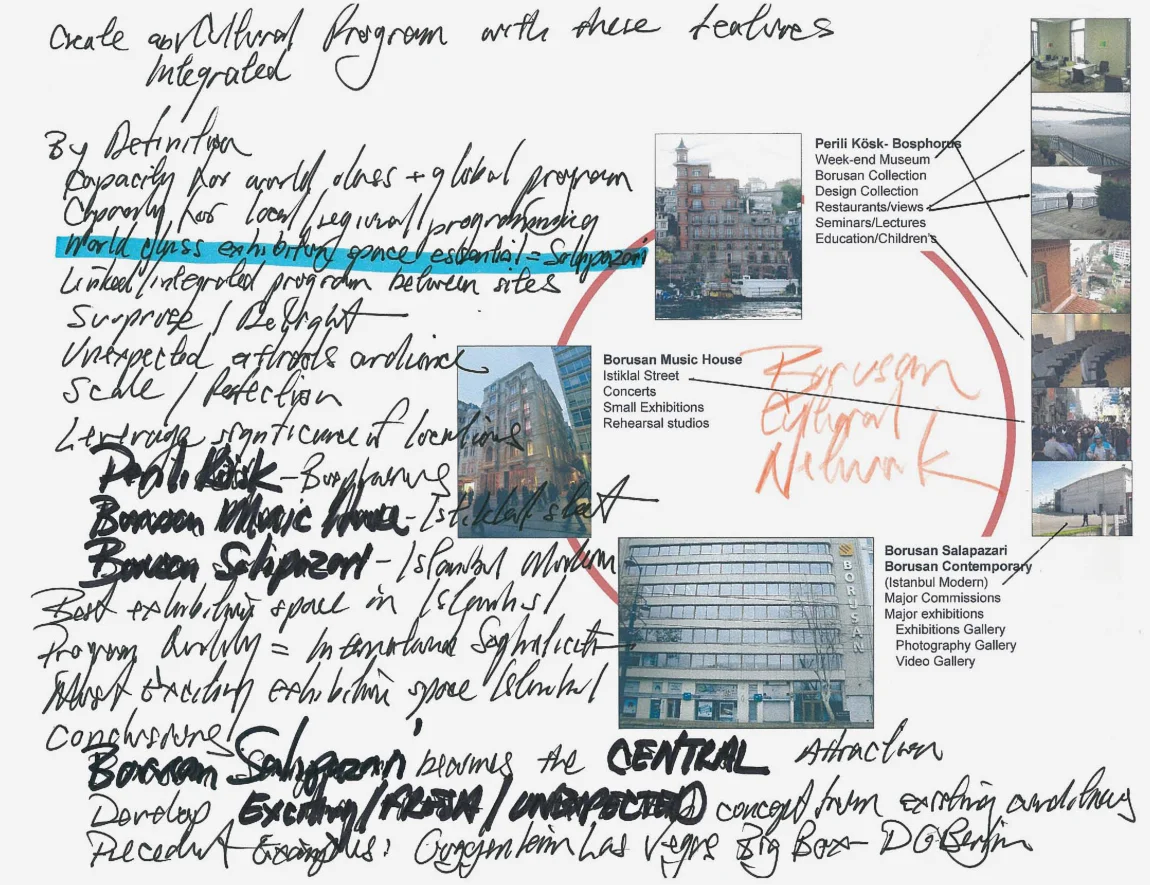 Create a Cultural Program with these features
Integrated
By Definition
Capacity for world class + global program
Capacity for local/regional/programming
World class exhibition space essential = Salapazari
Linked/integrated program between sites
Surprise / Delight
Unexpected attracts audience
Scale /
Leverage significance of locations
Perili Kösk -
Borusan Music House - Istiklal street
Borusan Salipazari - Istanbul Modern
Best exhibition space in Istanbul
Program Quality = International
Most exciting exhibition space Istanbul
Conclusions
Borusan Salipazari becomes the CENTRAL Attraction
Develop Exciting/FRESH/UNEXPECTED concept from existing
Precedent Examples: Guggenheim Las Vegas Big Box - DG Berlin
Perili Kösk- Bosphorus
Week-end Museum
Borusan Collection
Design Collection
Restaurants/views
Seminars/Lectures
Education/Children's
Borusan Music House
Istiklal Street
Concerts
Small Exhibitions
Rehearsal studios
Borusan
Cultural
Network
BORUSAN
Borusan Salapazari
Borusan Contemporary
(Istanbul Modern)
Major Commissions
Major exhibitions
Exhibitions Gallery
Photography Gallery
Video Gallery